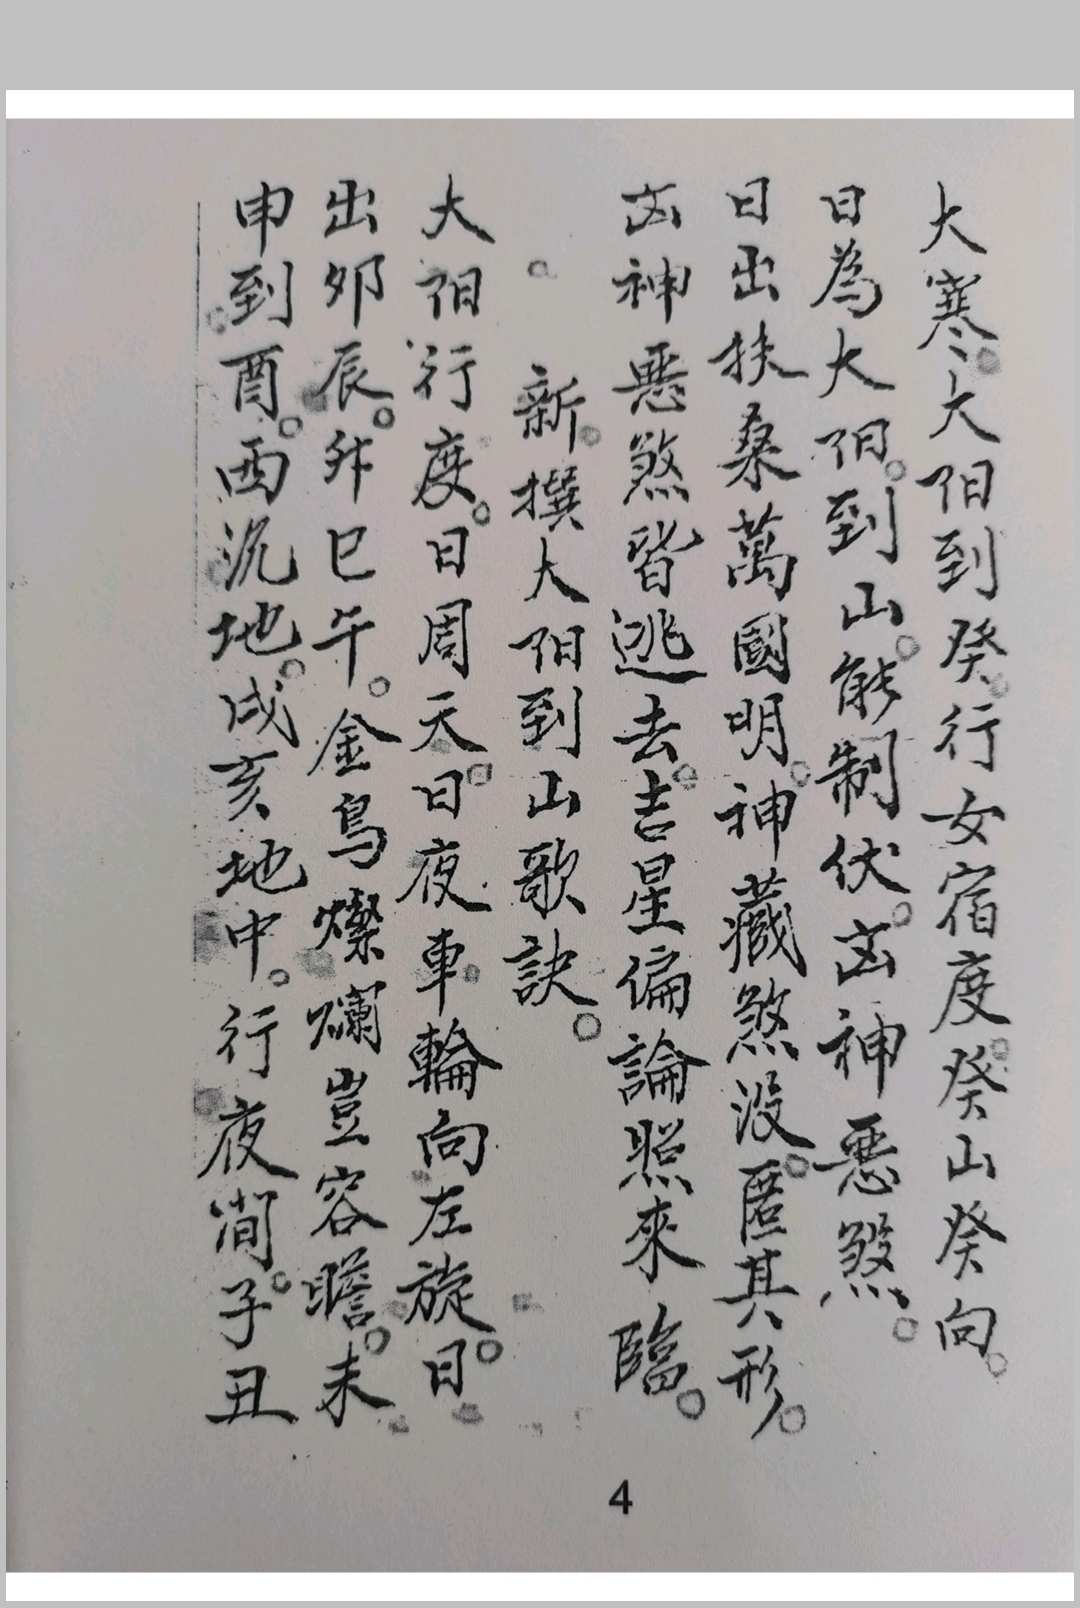 大寒。大阳到癸。行女宿度。癸山癸向。
日為大阳。到山。能制伏。凶神惡煞。
日出扶桑萬國明。神藏煞没。匿其形。
凶神惡煞皆逃去。吉星偏論照來臨。
新撰大阳到山歌訣。
大阳行度。日周天。日夜車輪向左旋。日
出夘辰。升巳午。金烏燦爛豈容瞻。未
申到酉。西沉地。戌亥地中。行夜间。子丑
4